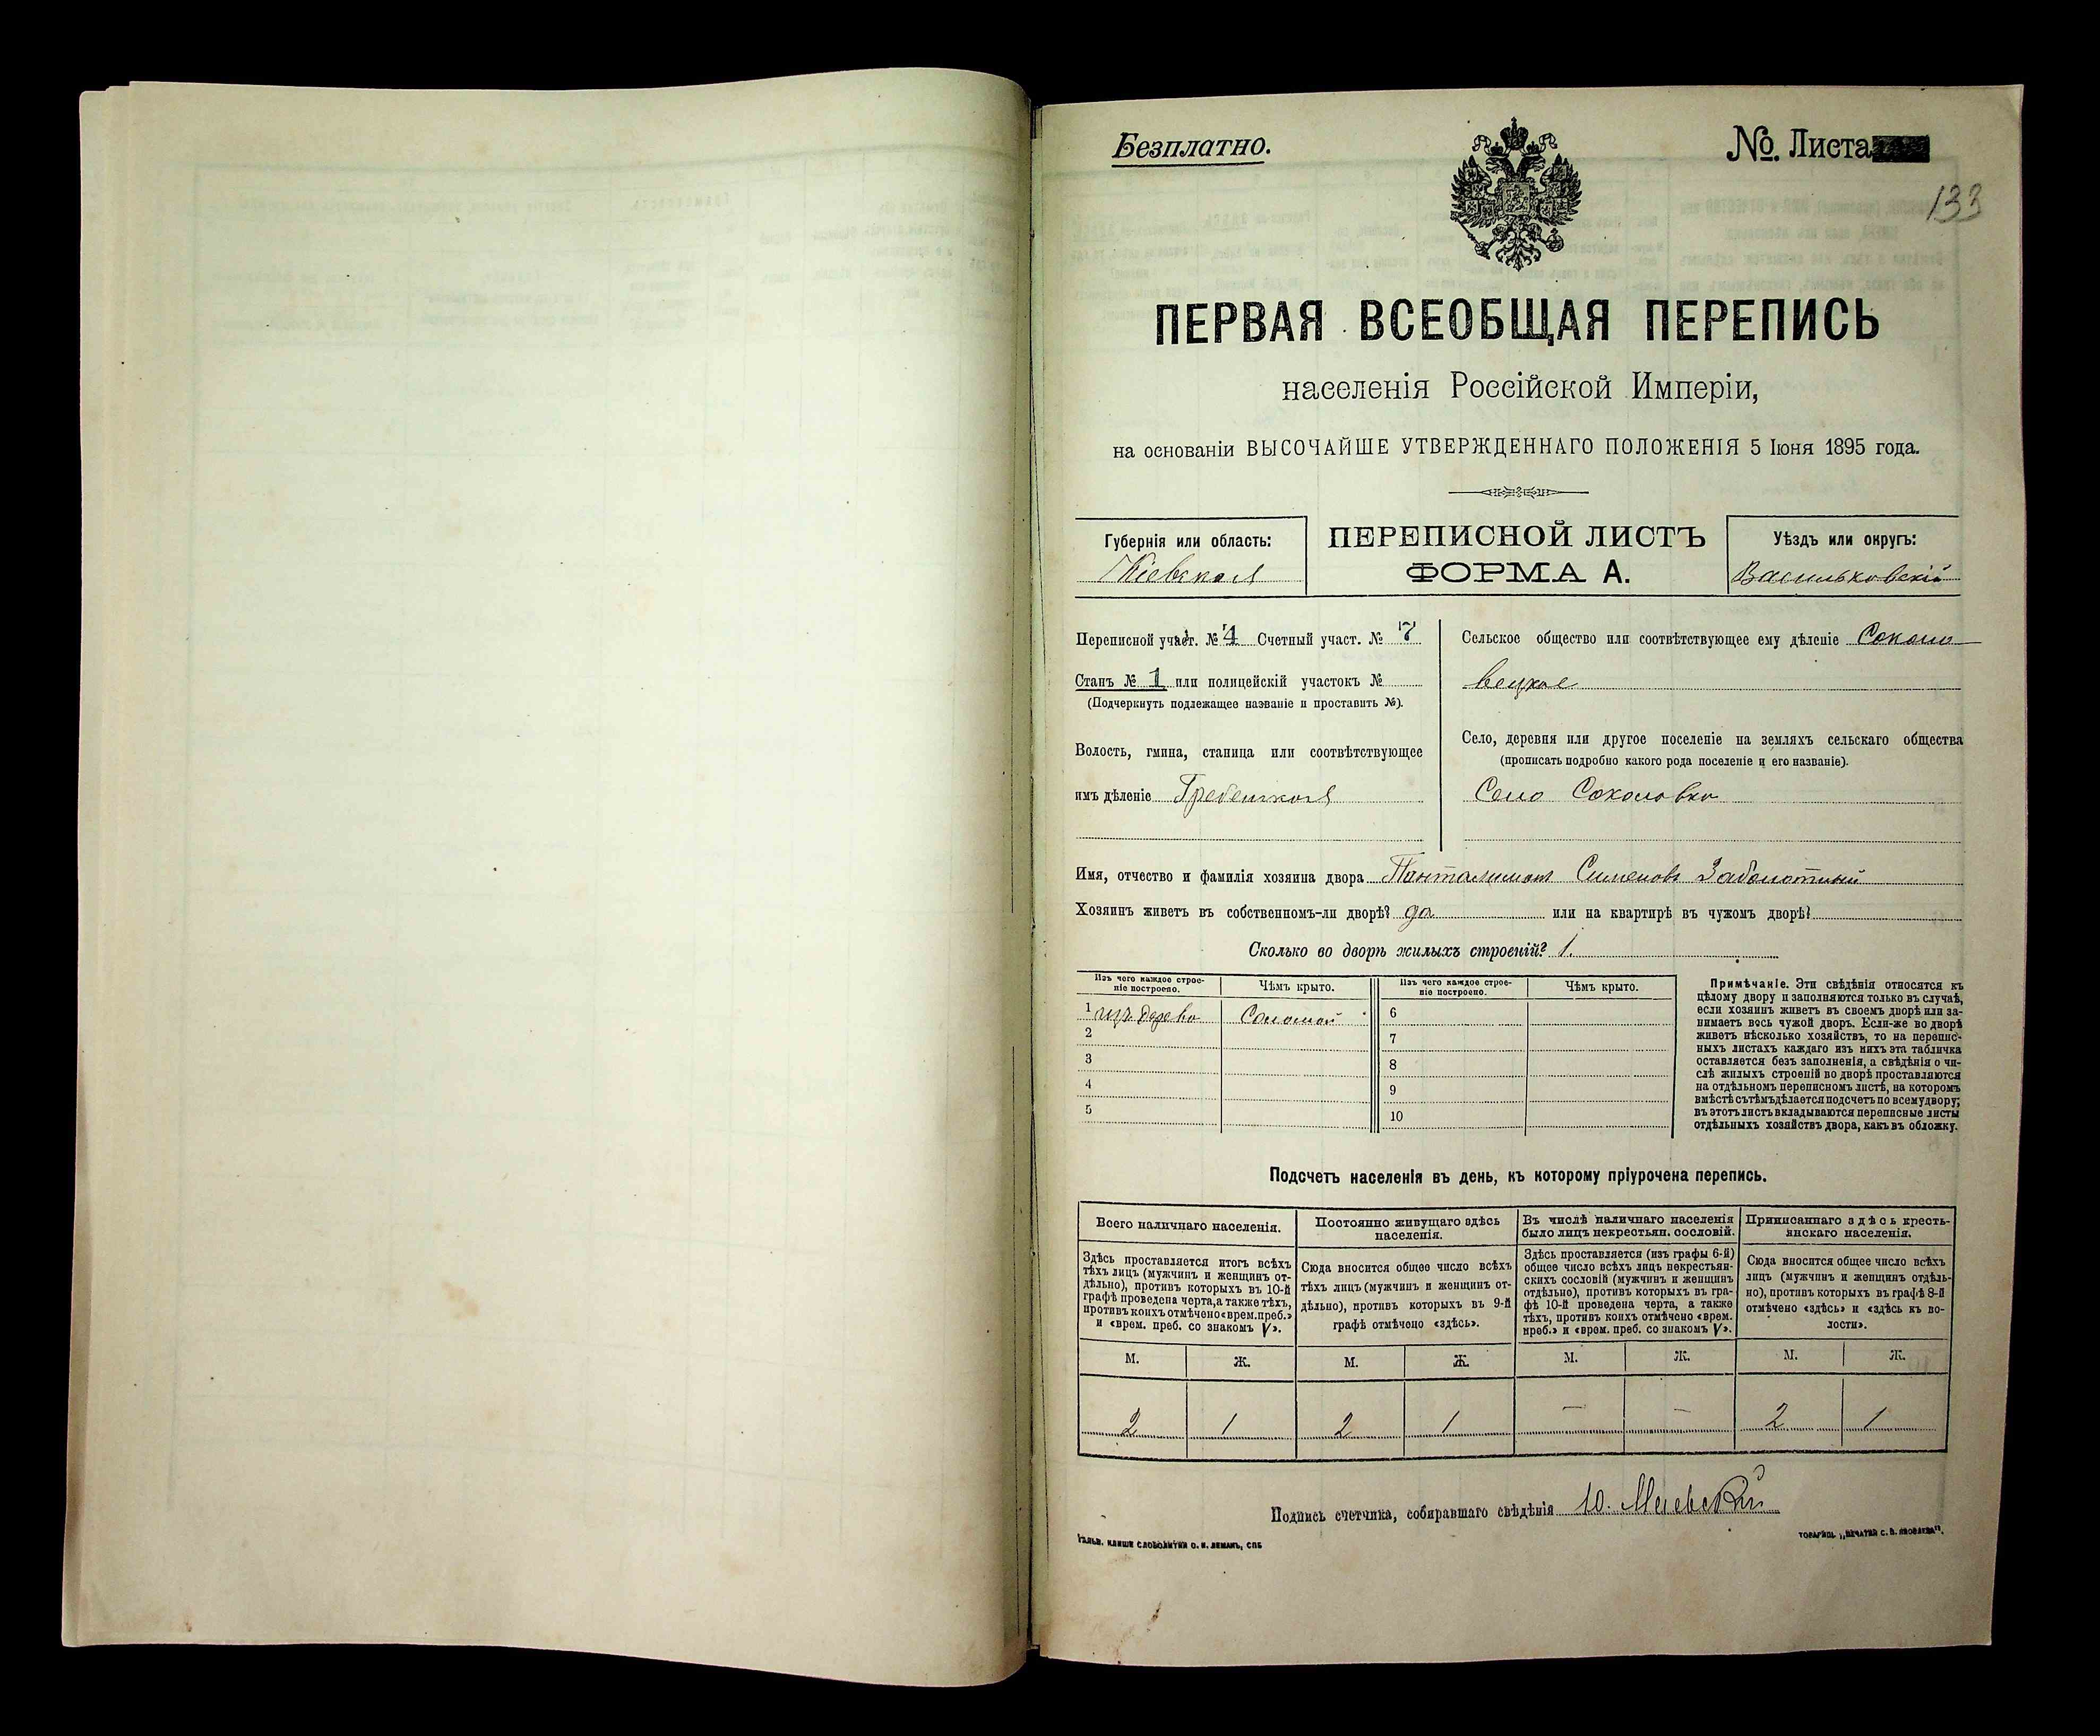 Безплатно.
№. Листа
133
ПЕРВАЯ ВСЕОБЩАЯ ПЕРЕПИСЬ
населенія Россійской Имперіи,
на основаніи ВЫСОЧАЙШЕ УТВЕРЖДЕННАГО ПОЛОЖЕНІЯ 5 Іюня 1895 года.
Губернія или область:
Кіевская
ПЕРЕПИСНОЙ ЛИСТЪ
ФОРМА А.
Уѣздъ или округъ:
Васильковскій
Переписной участ. № 4 Счетный участ. № 7
Станъ № 1 или полицейскій участокъ №
(Подчеркнуть подлежащее названіе и проставить №).
Волость, гмина, станица или соотвѣтствующее
имъ дѣленіе Гребенская
Сельское общество или соотвѣтствующее ему дѣленіе Соколо
вецкое
Село, деревня или другое поселеніе на земляхъ сельскаго общества
(прописать подробно какого рода поселеніе и его названіе).
Село Соколовка
Имя, отчество и фамилія хозяина двора Панталимон Сименовъ Заболотный
Хозяинъ живетъ въ собственномъ-ли дворѣ? да или на квартирѣ въ чужомъ дворѣ?
Сколько во дворѣ жилыхъ строеній? 1.
Изъ чего каждое строе-
ніе построено.
Чѣмъ крыто.
Изъ чего каждое строе-
ніе построено.
Чѣмъ крыто.
1 изъ дерева Соломой 6
2 7
3 8
4 9
5 10
Примѣчаніе. Эти свѣдѣнія относятся къ
цѣлому двору и заполняются только въ случаѣ,
если хозяинъ живетъ въ своемъ дворѣ или за-
нимаетъ весь чужой дворъ. Если-же во дворѣ
живетъ нѣсколько хозяйствъ, то на перепис-
ныхъ листахъ каждаго изъ нихъ эта табличка
оставляется безъ заполненія, а свѣдѣнія о чи-
слѣ жилыхъ строеній во дворѣ проставляются
на отдѣльномъ переписномъ листѣ, на которомъ
вмѣстѣ съ тѣмъ дѣлается подсчетъ по всему двору;
въ этотъ листъ вкладываются переписные листы
отдѣльныхъ хозяйствъ двора, какъ въ обложку.
Подсчетъ населенія въ день, къ которому пріурочена перепись.
Всего наличнаго населенія.
Здѣсь проставляется итогъ всѣхъ
тѣхъ лицъ (мужчинъ и женщинъ от-
дѣльно), противъ которыхъ въ 10-й
графѣ проведена черта, а также тѣхъ,
противъ коихъ отмѣчено «врем. преб.»
и «врем. преб. со знакомъ V».
Постоянно живущаго здѣсь
населенія.
Сюда вносится общее число всѣхъ
тѣхъ лицъ (мужчинъ и женщинъ от-
дѣльно), противъ которыхъ въ 9-й
графѣ отмѣчено «здѣсь».
Въ числѣ наличнаго населенія
было лицъ некрестьян. сословій.
Здѣсь проставляется (изъ графы 6-й)
общее число всѣхъ лицъ некрестьян-
скихъ сословій (мужчинъ и женщинъ
отдѣльно), противъ которыхъ въ гра-
фѣ 10-й проведена черта, а также
тѣхъ, противъ коихъ отмѣчено «врем.
преб.» и «врем. преб. со знакомъ V».
Приписаннаго здѣсь кресть-
янскаго населенія.
Сюда вносится общее число всѣхъ
лицъ (мужчинъ и женщинъ отдѣль-
но), противъ которыхъ въ графѣ 8-й
отмѣчено «здѣсь» и «здѣсь къ во-
лости».
М. Ж. М. Ж. М. Ж. М. Ж.
2 1 2 1 — — 2 1
Подпись счетчика, собиравшаго свѣдѣнія Ю.
ГАЛЬВ. КЛИШЕ СЛОВОЛИТНИ О. И. ЛЕМАНЪ, СПБ
ТОВАРИЩ. „ПЕЧАТНЯ С. П. ЯКОВЛЕВА".